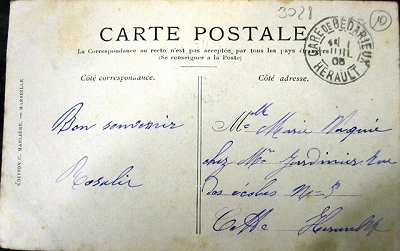 3028
10
CARTE POSTALE
La Correspondance au recto n'est pas acceptée par tous les pays étrangers
(Se renseigner à la Poste)
GARE DE BEDARIEUX
HERAULT
05
Côté correspondance.
Côté adresse.
Bon souvenir
Rosalie
Melle Marie
chez Mr Jardinier Rue
des écoles No = 5
Cette Herault
EDITION C. MARLIÈRE. — MARSEILLE